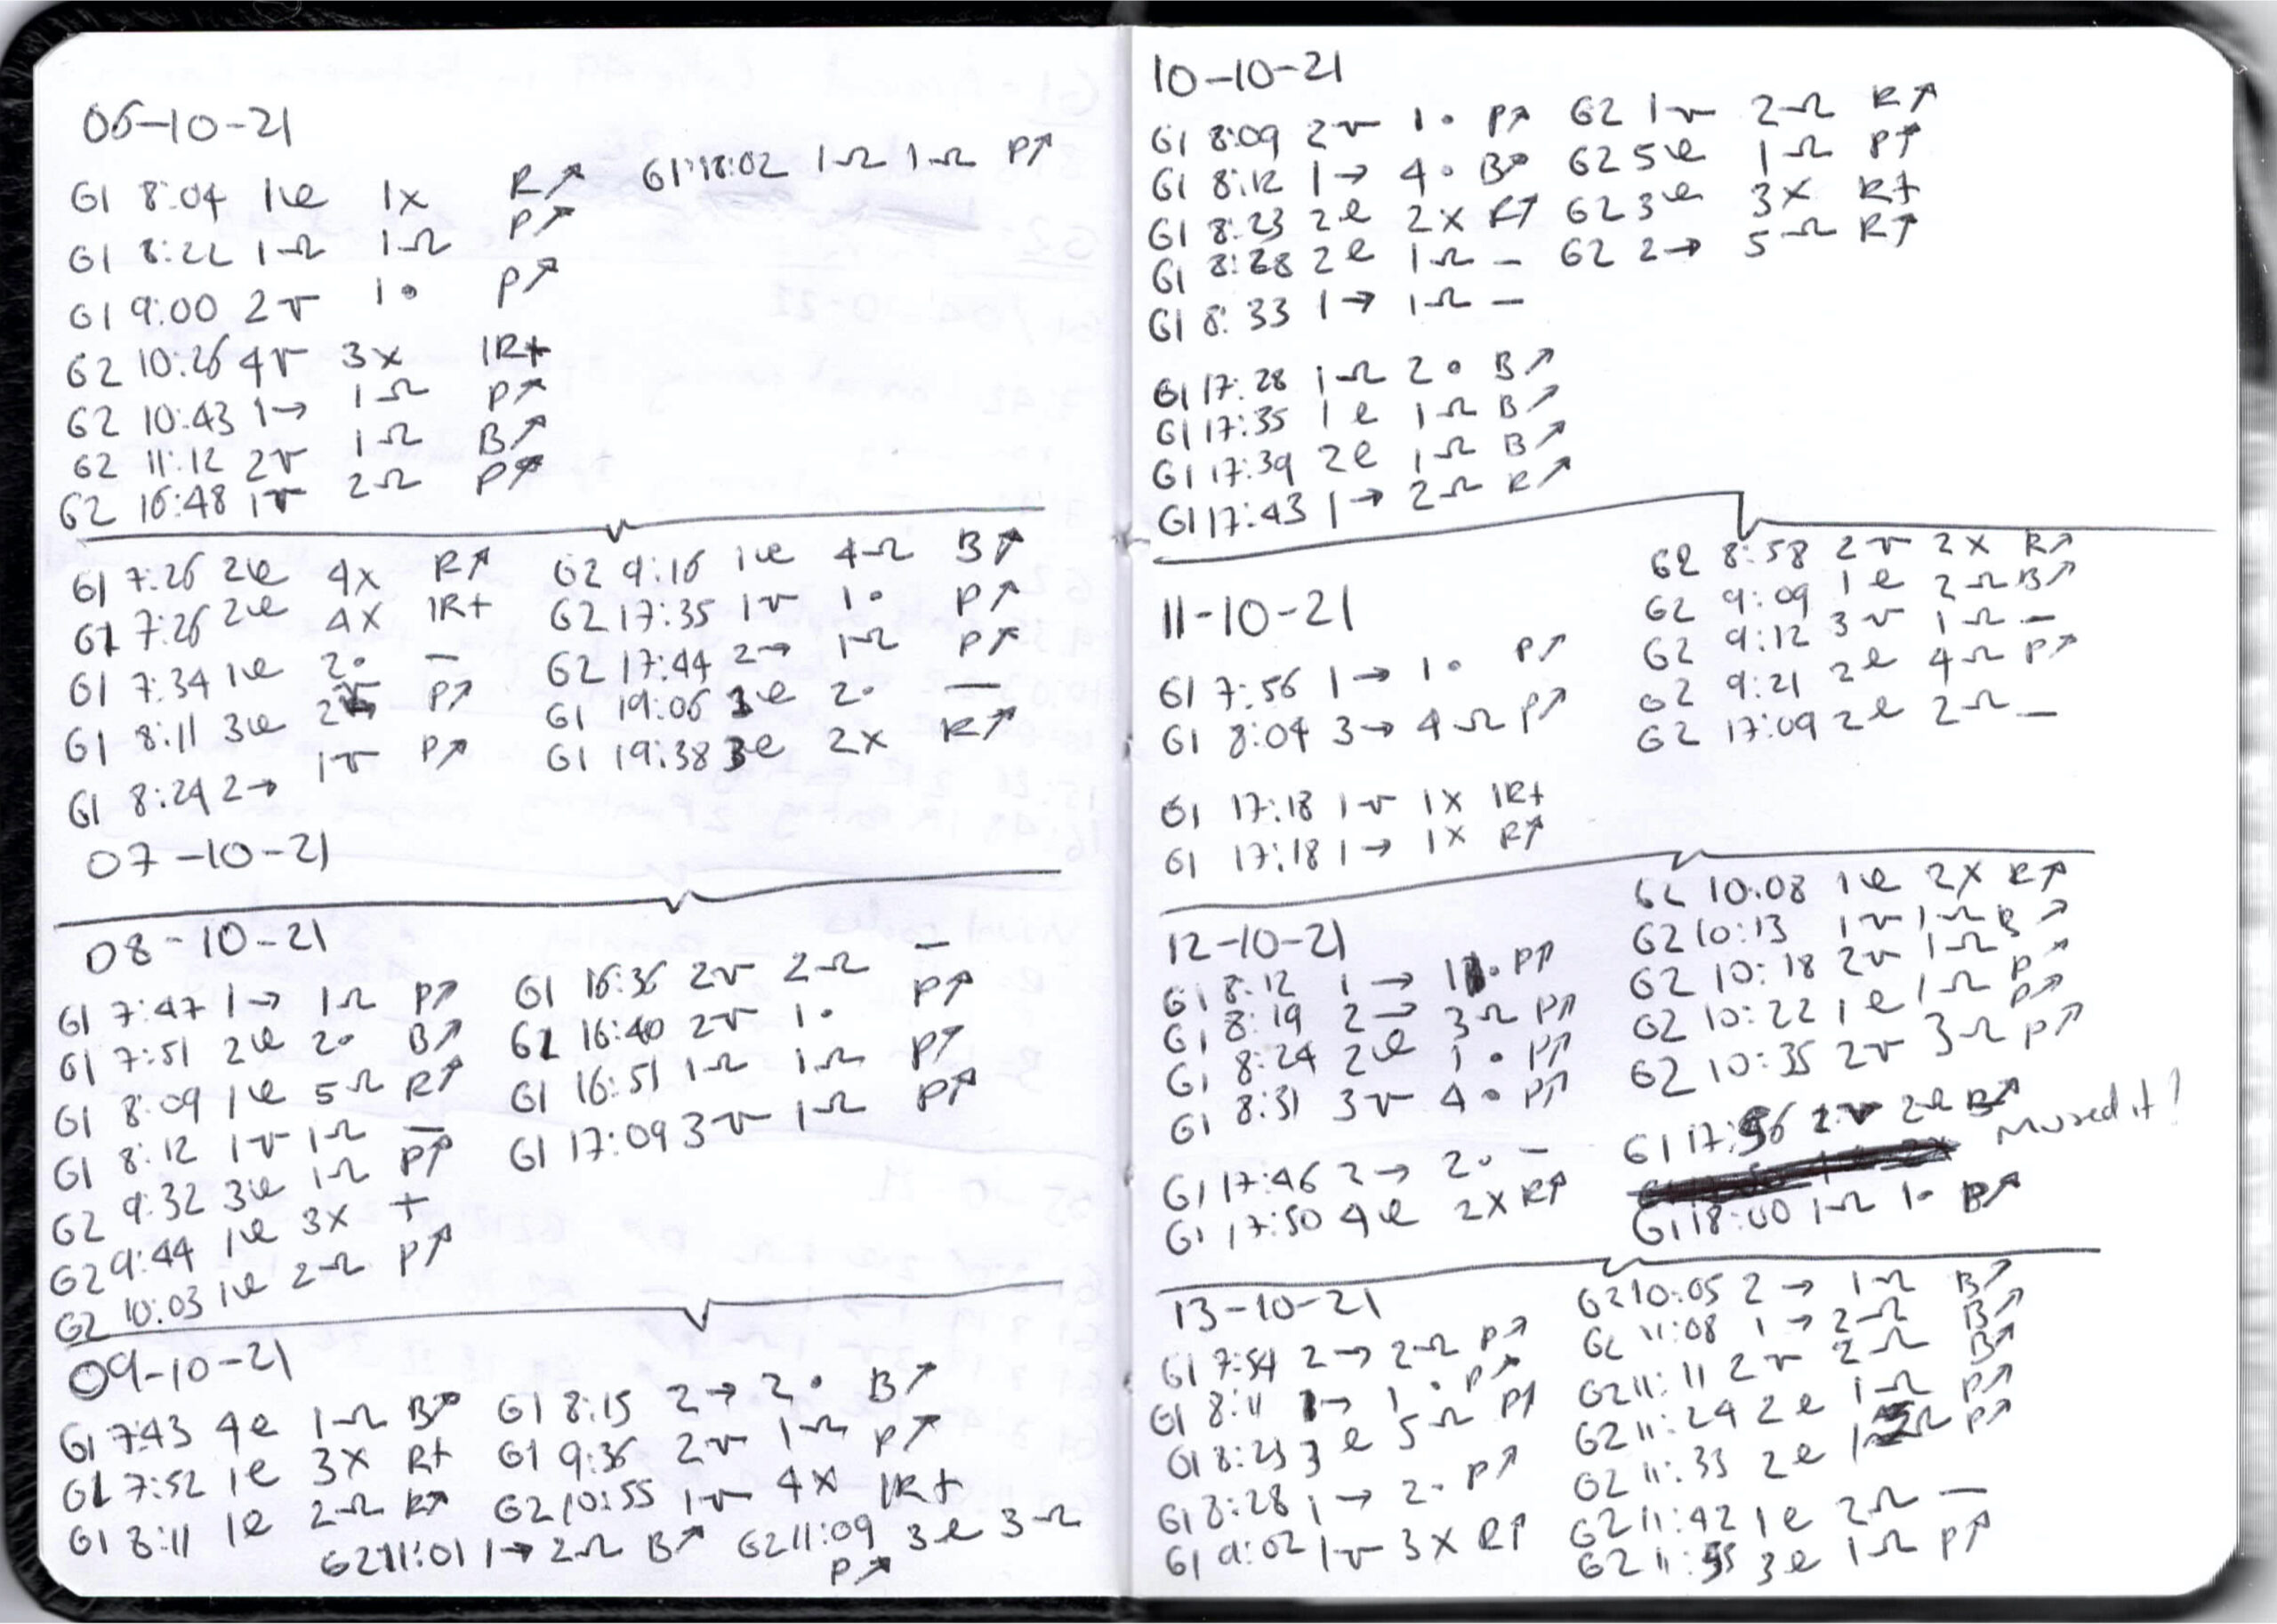 06-10-21
G1 8:04 1e 1x R↗
G1 18:02 1Ω 1Ω P↗
G1 8:22 1Ω 1Ω P↗
G1 9:00 2r 1• P↗
G2 10:26 4r 3x 1R+
G2 10:43 1→ 1Ω P↗
G2 11:12 2r 1Ω B↗
G2 16:48 1r 2Ω P↗
G1 7:26 2e 4x R↗
G1 7:26 2e 4x 1R+
G1 7:34 1e 2• —
G1 8:11 3e 2 P↗
G1 8:24 2→ 1r P↗
07-10-21
G2 9:16 1e 4Ω B↗
G2 17:35 1r 1• P↗
G2 17:44 2→ 1Ω P↗
G1 19:06 1e 2• —
G1 19:38 3e 2x R↗
08-10-21
G1 7:47 1→ 1Ω P↗
G1 7:51 2e 2• B↗
G1 8:09 1e 5Ω R↗
G1 8:12 1r 1Ω —
G2 9:32 3e 1Ω P↗
G2 9:44 1e 3x +
G2 10:03 1e 2Ω P↗
G1 16:36 2r 2Ω —
G1 16:40 2r 1• P↗
G1 16:51 1Ω 1Ω P↗
G1 17:09 3r 1Ω P↗
09-10-21
G1 7:43 4e 1Ω B↗
G1 7:52 1e 3x R+
G1 8:11 1e 2Ω R↗
G1 8:15 2→ 2• B↗
G1 9:36 2r 1Ω P↗
G2 10:55 1r 4x 1R+
G2 11:01 1→ 2Ω B↗
G2 11:09 3e 3Ω
P↗
10-10-21
G1 8:09 2r 1• P↗
G1 8:12 1→ 4• B↗
G1 8:23 2e 2x R↗
G1 8:28 2e 1Ω —
G1 8:33 1→ 1Ω —
G2 1r 2Ω R↗
G2 5e 1Ω P↗
G2 3e 3x R+
G2 2→ 5Ω R↗
G1 17:28 1Ω 2• B↗
G1 17:35 1e 1Ω B↗
G1 17:39 2e 1Ω B↗
G1 17:43 1→ 2Ω R↗
11-10-21
G1 7:56 1→ 1• P↗
G1 8:04 3→ 4Ω P↗
G1 17:18 1r 1x 1R+
G1 17:18 1→ 1x R↗
G2 8:58 2r 2x R↗
G2 9:09 1e 2Ω B↗
G2 9:12 3r 1Ω —
G2 9:21 2e 4Ω P↗
G2 17:09 2e 2Ω —
12-10-21
G1 8:12 1→ 1• P↗
G1 8:19 2→ 3Ω P↗
G1 8:24 2e 1• P↗
G1 8:31 3r 4• P↗
G1 17:46 2→ 2• —
G1 17:50 4e 2x R↗
G2 10:08 1e 2x R↗
G2 10:13 1r 1Ω B↗
G2 10:18 2r 1Ω
G2 10:22 1e 1Ω P↗
G2 10:35 2r 3Ω P↗
G1 17:56 2r 2e B↗
Mused it!
G1 18:00 1Ω 1• B↗
13-10-21
G1 7:54 2→ 2Ω P↗
G1 8:11 1→ 1• P↗
G1 8:23 3e 5Ω P↗
G1 8:28 1→ 2• P↗
G1 9:02 1r 3x R↗
G2 10:05 2→ 1Ω B↗
G2 11:08 1→ 2Ω B↗
G2 11:11 2r 2Ω B↗
G2 11:24 2e 1Ω P↗
G2 11:33 2e 1Ω P↗
G2 11:42 1e 2Ω —
G2 11:55 3e 1Ω P↗